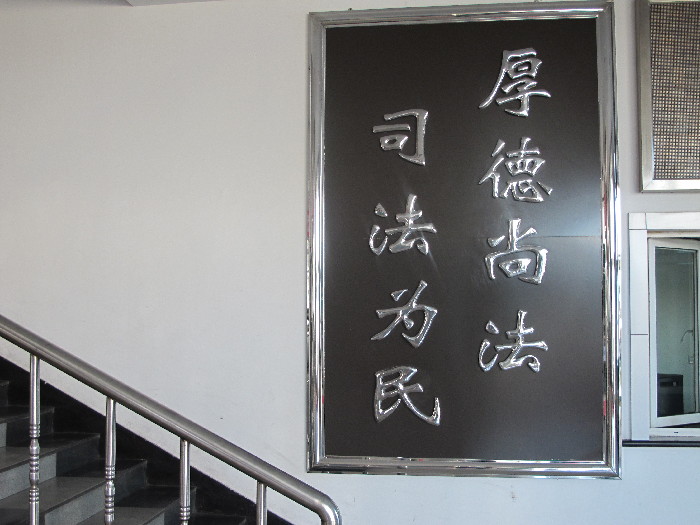 厚德尚法
司法为民